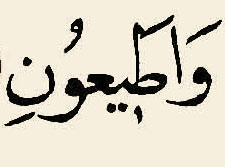 وَاَطِيعُونِ